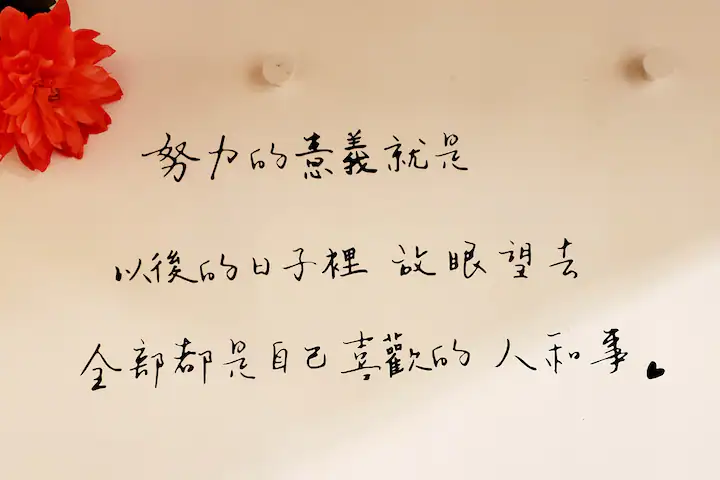 努力的意義就是
以後的日子裡 放眼望去
全部都是自己喜歡的 人和事